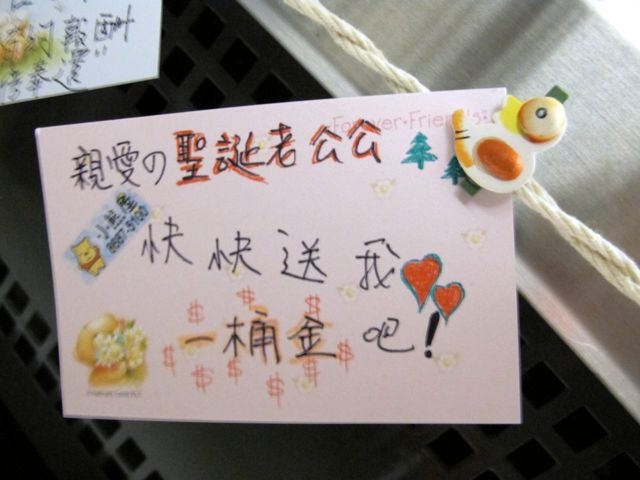 Forever Friends
親愛の聖誕老公公
快快送我
一桶金吧!
$ $ $ $ $ $ $ $ $ $